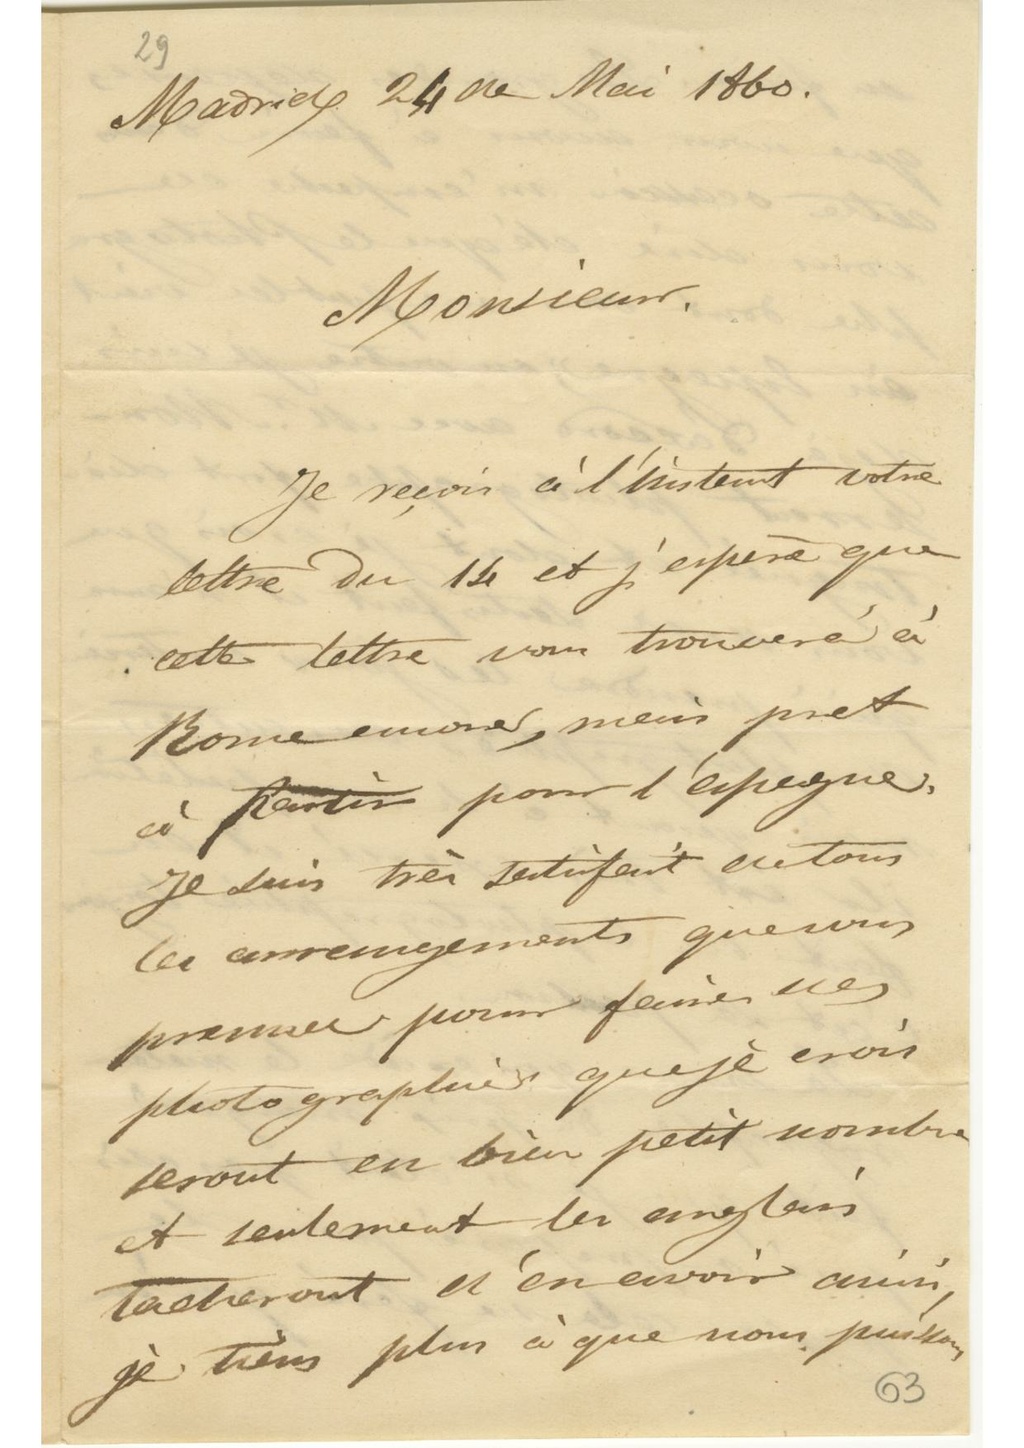 29
Madrid 24 de Mai 1860.
Monsieur.
Je reçois à l'instant votre
lettre du 14 et j'espère que
cette lettre vous trouverá à
Rome encore, mais pret
à Partir pour l'espagne.
Je suis très satisfait de tous
les arrangements que vous
prennez pour faires des
photographies que jè crois
seront en bien petit nombre
et seulement les anglais
tacheront d'en avoir ainsi,
jè tièns plus à que nous puissons
63